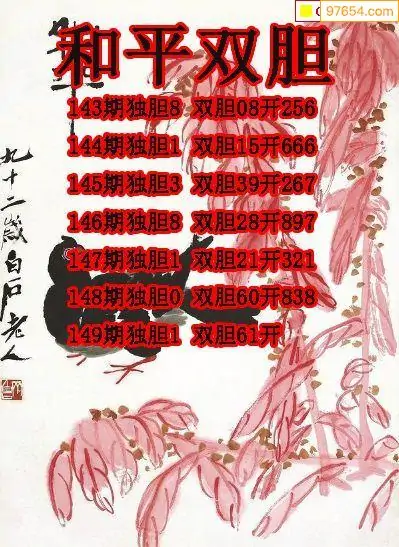 97654.com
和平双胆
143期独胆8 双胆08开256
144期独胆1 双胆15开666
145期独胆3 双胆39开267
146期独胆8 双胆28开897
147期独胆1 双胆21开321
148期独胆0 双胆60开838
149期独胆1 双胆61开
九十二岁白石老人